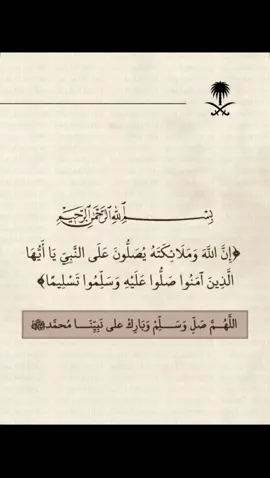 بِسْمِ اللهِ الرَّحْمَنِ الرَّحِيْمِ
﴿إِنَّ اللَّهَ وَمَلَائِكَتَهُ يُصَلُّونَ عَلَى النَّبِيِّ يَا أَيُّهَا
الَّذِينَ آمَنُوا صَلُّوا عَلَيْهِ وَسَلِّمُوا تَسْلِيمًا﴾
اللَّهُمَّ صَلِّ وَسَلِّمْ وَبَارِكْ على نَبِيِّنَا مُحمَّد ﷺ